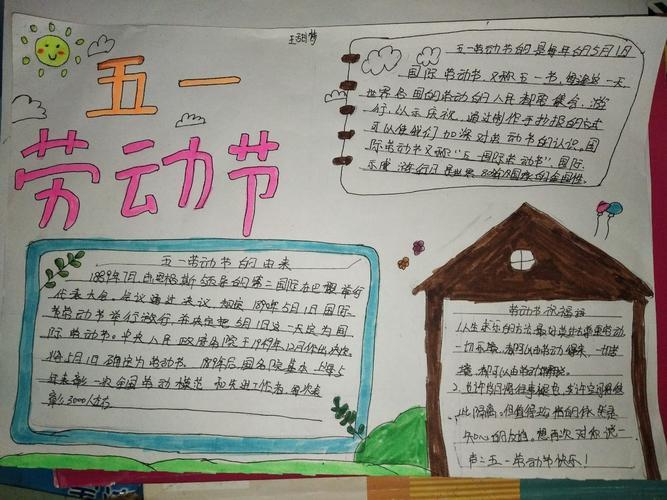 五一
劳动节
五一劳动节的是每年的5月1日
国际劳动节又称五一节,每逢这一天
世界各国的劳动的人民都要集会,游
行,以示庆祝。通过制作手抄报的方式
可以使我们加深对劳动节的认识。国
际劳动节又称“五一国际劳动节”、国际
示威游行日是世界80多个国家的全国性
五一劳动节的由来
1889年7月,由恩格斯领导的第二国际在巴黎举行
代表大会。会议通过决议,规定1890年5月1日国际
劳动节举行游行,并决定把5月1日这一天定为国
际劳动节。中央人民政府政务院于1949年12月作出决定,
将5月1日确定为劳动节。1989年后,国务院基本上每5
年表彰一次全国劳动模范和先进工作者,每次表
彰3000人左右
劳动节祝福语
1.人生求乐的方法,最好
一切乐境,都可以由劳动得来,一切苦
境,都可以由劳动解脱。
2.
此隔离。但值得
的友谊。想再次对你说一
声:五一劳动节快乐!